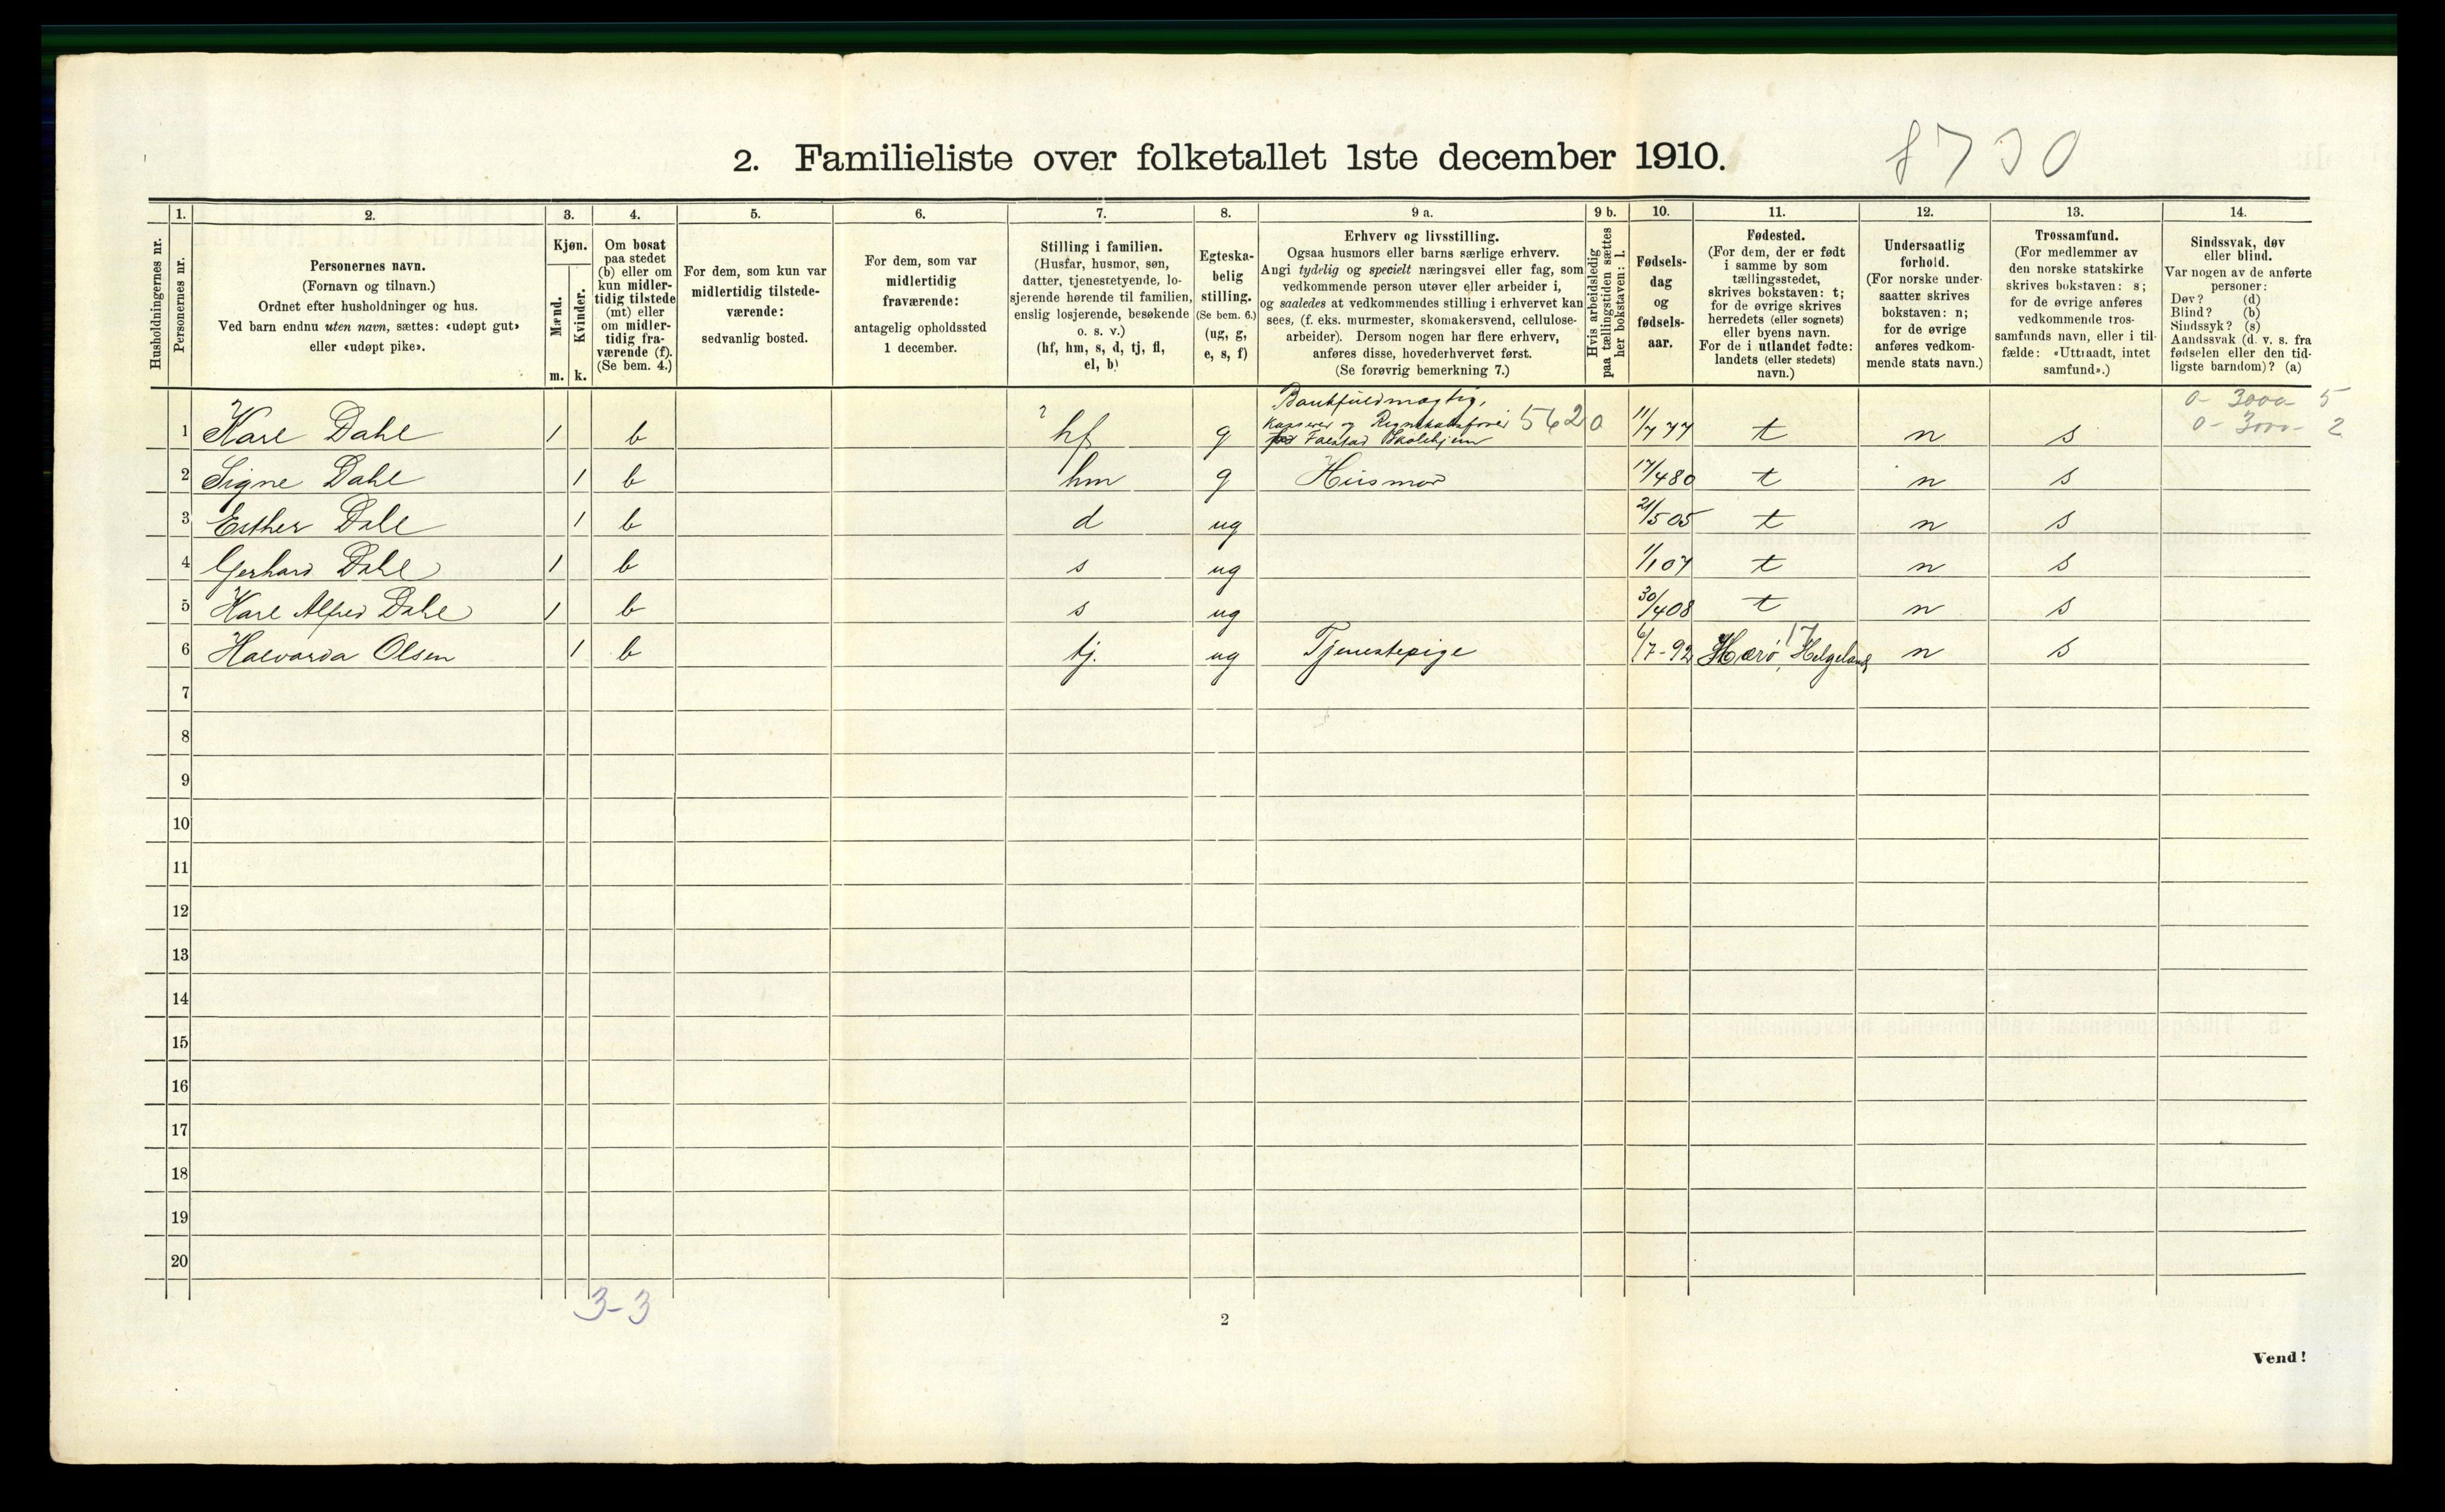 2. Familieliste over folketallet 1ste december 1910.
8730
1. 2. 3. 4. 5. 6. 7. 8. 9 a. 9 b. 10. 11. 12. 13. 14.
Husholdningernes nr.
Personernes nr.
Personernes navn.
(Fornavn og tilnavn.)
Ordnet efter husholdninger og hus.
Ved barn endnu uten navn, sættes: «udøpt gut»
eller «udøpt pike».
Kjøn.
Mænd.
Kvinder.
m. k.
Om bosat
paa stedet
(b) eller om
kun midler-
tidig tilstede
(mt) eller
om midler-
tidig fra-
værende (f).
(Se bem. 4.)
For dem, som kun var
midlertidig tilstede-
værende:
sedvanlig bosted.
For dem, som var
midlertidig
fraværende:
antagelig opholdssted
1 december.
Stilling i familien.
(Husfar, husmor, søn,
datter, tjenestetyende, lo-
sjerende hørende til familien,
enslig losjerende, besøkende
o. s. v.)
(hf, hm, s, d, tj, fl,
el, b)
Egteska-
belig
stilling.
(Se bem. 6.)
(ug, g,
e, s, f)
Erhverv og livsstilling.
Ogsaa husmors eller barns særlige erhverv.
Angi tydelig og specielt næringsvei eller fag, som
vedkommende person utøver eller arbeider i,
og saaledes at vedkommendes stilling i erhvervet kan
sees, (f. eks. murmester, skomakersvend, cellulose-
arbeider). Dersom nogen har flere erhverv,
anføres disse, hovederhvervet først.
(Se forøvrig bemerkning 7.)
Hvis arbeidsledig
paa tællingstiden sættes
her bokstaven: l.
Fødsels-
dag
og
fødsels-
aar.
Fødested.
(For dem, der er født
i samme by som
tællingsstedet,
skrives bokstaven: t;
for de øvrige skrives
herredets (eller sognets)
eller byens navn.
For de i utlandet fødte:
landets (eller stedets)
navn.)
Undersaatlig
forhold.
(For norske under-
saatter skrives
bokstaven: n;
for de øvrige
anføres vedkom-
mende stats navn.)
Trossamfund.
(For medlemmer av
den norske statskirke
skrives bokstaven: s;
for de øvrige anføres
vedkommende tros-
samfunds navn, eller i til-
fælde: «Uttraadt, intet
samfund».)
Sindssvak, døv
eller blind.
Var nogen av de anførte
personer:
Døv? (d)
Blind? (b)
Sindssyk? (s)
Aandssvak (d. v. s. fra
fødselen eller den tid-
ligste barndom)? (a)
Bankfuldmægtig,
0- 3000- 5
1 Karl Dahl 1 b hf g Kasserer og Regnskabsfører 5620 11/7 77 t n s 0- 3000- 2
Falstad Skolehjem
2 Signe Dahl 1 b hm g Husmor 17/4 80 t n s
3 Esther Dahl 1 b d ug 21/5 05 t n s
4 Gerhard Dahl 1 b s ug 1/1 07 t n s
5 Karl Alfred Dahl 1 b s ug 30/4 08 t n s
6 Halvarda Olsen 1 b tj. ug Tjenestepige 6/7-92 Herø, Helgeland 17 n s
7
8
9
10
11
12
13
14
15
16
17
18
19
20
3-3
2
Vend!